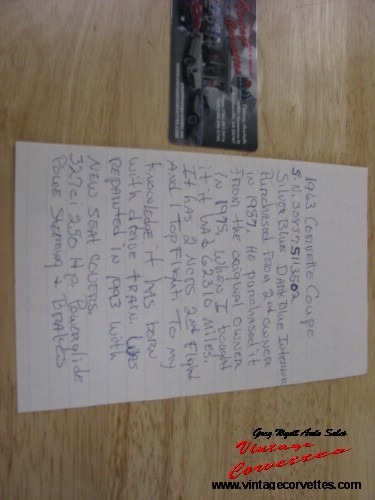 1963 Corvette Coupe
S.N. 30837S113502
Silver Blue Dark Blue Interior
Purchased from 2nd owner
in 1987. He purchased it
from the original owner
in 1975. When I bought
it it had 62310 miles.
It has 2 NCRS 2nd Flight
And 1 Top Flight. To my
knowledge it has born
with drive train. Was
repainted in 1993 with
New Seat Covers.
327ci 250 H.P. Powerglide
Power Steering & Brakes
Corvettes
Greg Wyatt Auto Sales
Vintage
Corvettes
www.vintagecorvettes.com